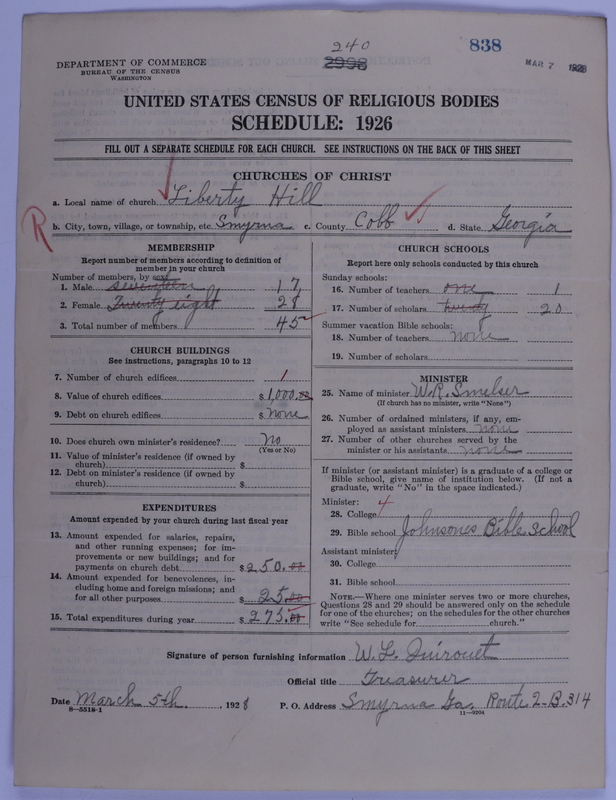 240
838
2998
MAR 7 1928
DEPARTMENT OF COMMERCE
BUREAU OF THE CENSUS
WASHINGTON
UNITED STATES CENSUS OF RELIGIOUS BODIES
SCHEDULE: 1926
FILL OUT A SEPARATE SCHEDULE FOR EACH CHURCH. SEE INSTRUCTIONS ON THE BACK OF THIS SHEET
CHURCHES OF CHRIST
a. Local name of church Liberty Hill
R
b. City, town, village, or township, etc. Smyrna c. County Cobb d. State Georgia
MEMBERSHIP
Report number of members according to definition of
member in your church
Number of members, by sex:
1. Male seventeen 17
2. Female Twenty eight 28
3. Total number of members 45
CHURCH BUILDINGS
See instructions, paragraphs 10 to 12
7. Number of church edifices 1
8. Value of church edifices $ 1,000.00
9. Debt on church edifices $ none
10. Does church own minister's residence? No
(Yes or No)
11. Value of minister's residence (if owned by
church) $
12. Debt on minister's residence (if owned by
church) $
EXPENDITURES
Amount expended by your church during last fiscal year
13. Amount expended for salaries, repairs,
and other running expenses; for im-
provements or new buildings; and for
payments on church debt $ 250.00
14. Amount expended for benevolences, in-
cluding home and foreign missions; and
for all other purposes $ 25.00
15. Total expenditures during year $ 275.00
CHURCH SCHOOLS
Report here only schools conducted by this church
Sunday schools:
16. Number of teachers one 1
17. Number of scholars twenty 20
Summer vacation Bible schools:
18. Number of teachers none
19. Number of scholars
MINISTER
25. Name of minister W.R. Smelser
(If church has no minister, write "None")
26. Number of ordained ministers, if any, em-
ployed as assistant ministers none
27. Number of other churches served by the
minister or his assistants none
If minister (or assistant minister) is a graduate of a college or
Bible school, give name of institution below. (If not a
graduate, write "No" in the space indicated.)
Minister:
28. College 4
29. Bible school Johnsones Bible School
Assistant minister:
30. College
31. Bible school
NOTE.—Where one minister serves two or more churches,
Questions 28 and 29 should be answered only on the schedule
for one of the churches; on the schedules for the other churches
write "See schedule for church."
Signature of person furnishing information W. L. Quirouet
Official title Treasurer
Date March 5th. , 1928 P. O. Address Smyrna Ga. Route 2-B.314
8—5518-1 11—9204